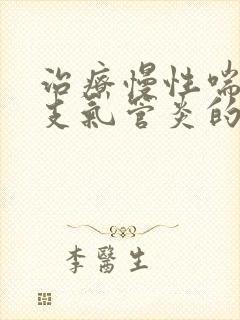 治療慢性喘
支氣管炎的
李醫生